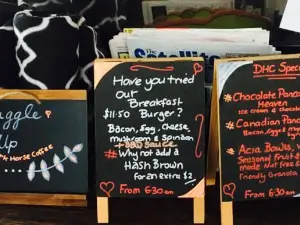 uggle
Up
Horse Coffee
The
Satellite
Have you tried
Our
Breakfast
$11.50 Burger?
Bacon, Egg, Cheese,
mushroom & Spinach
+ BBQ Sauce
# Why not add a
Hash Brown
for an extra $2
From 6:30am
DHG Spec
* Chocolate Panc
Heaven
Ice cream & choc
* Canadian Panc
Bacon, Egg & m
* Acia Bowls, V
Seasonal Fruit
made Nut free
Friendly Granola
From 6:30am